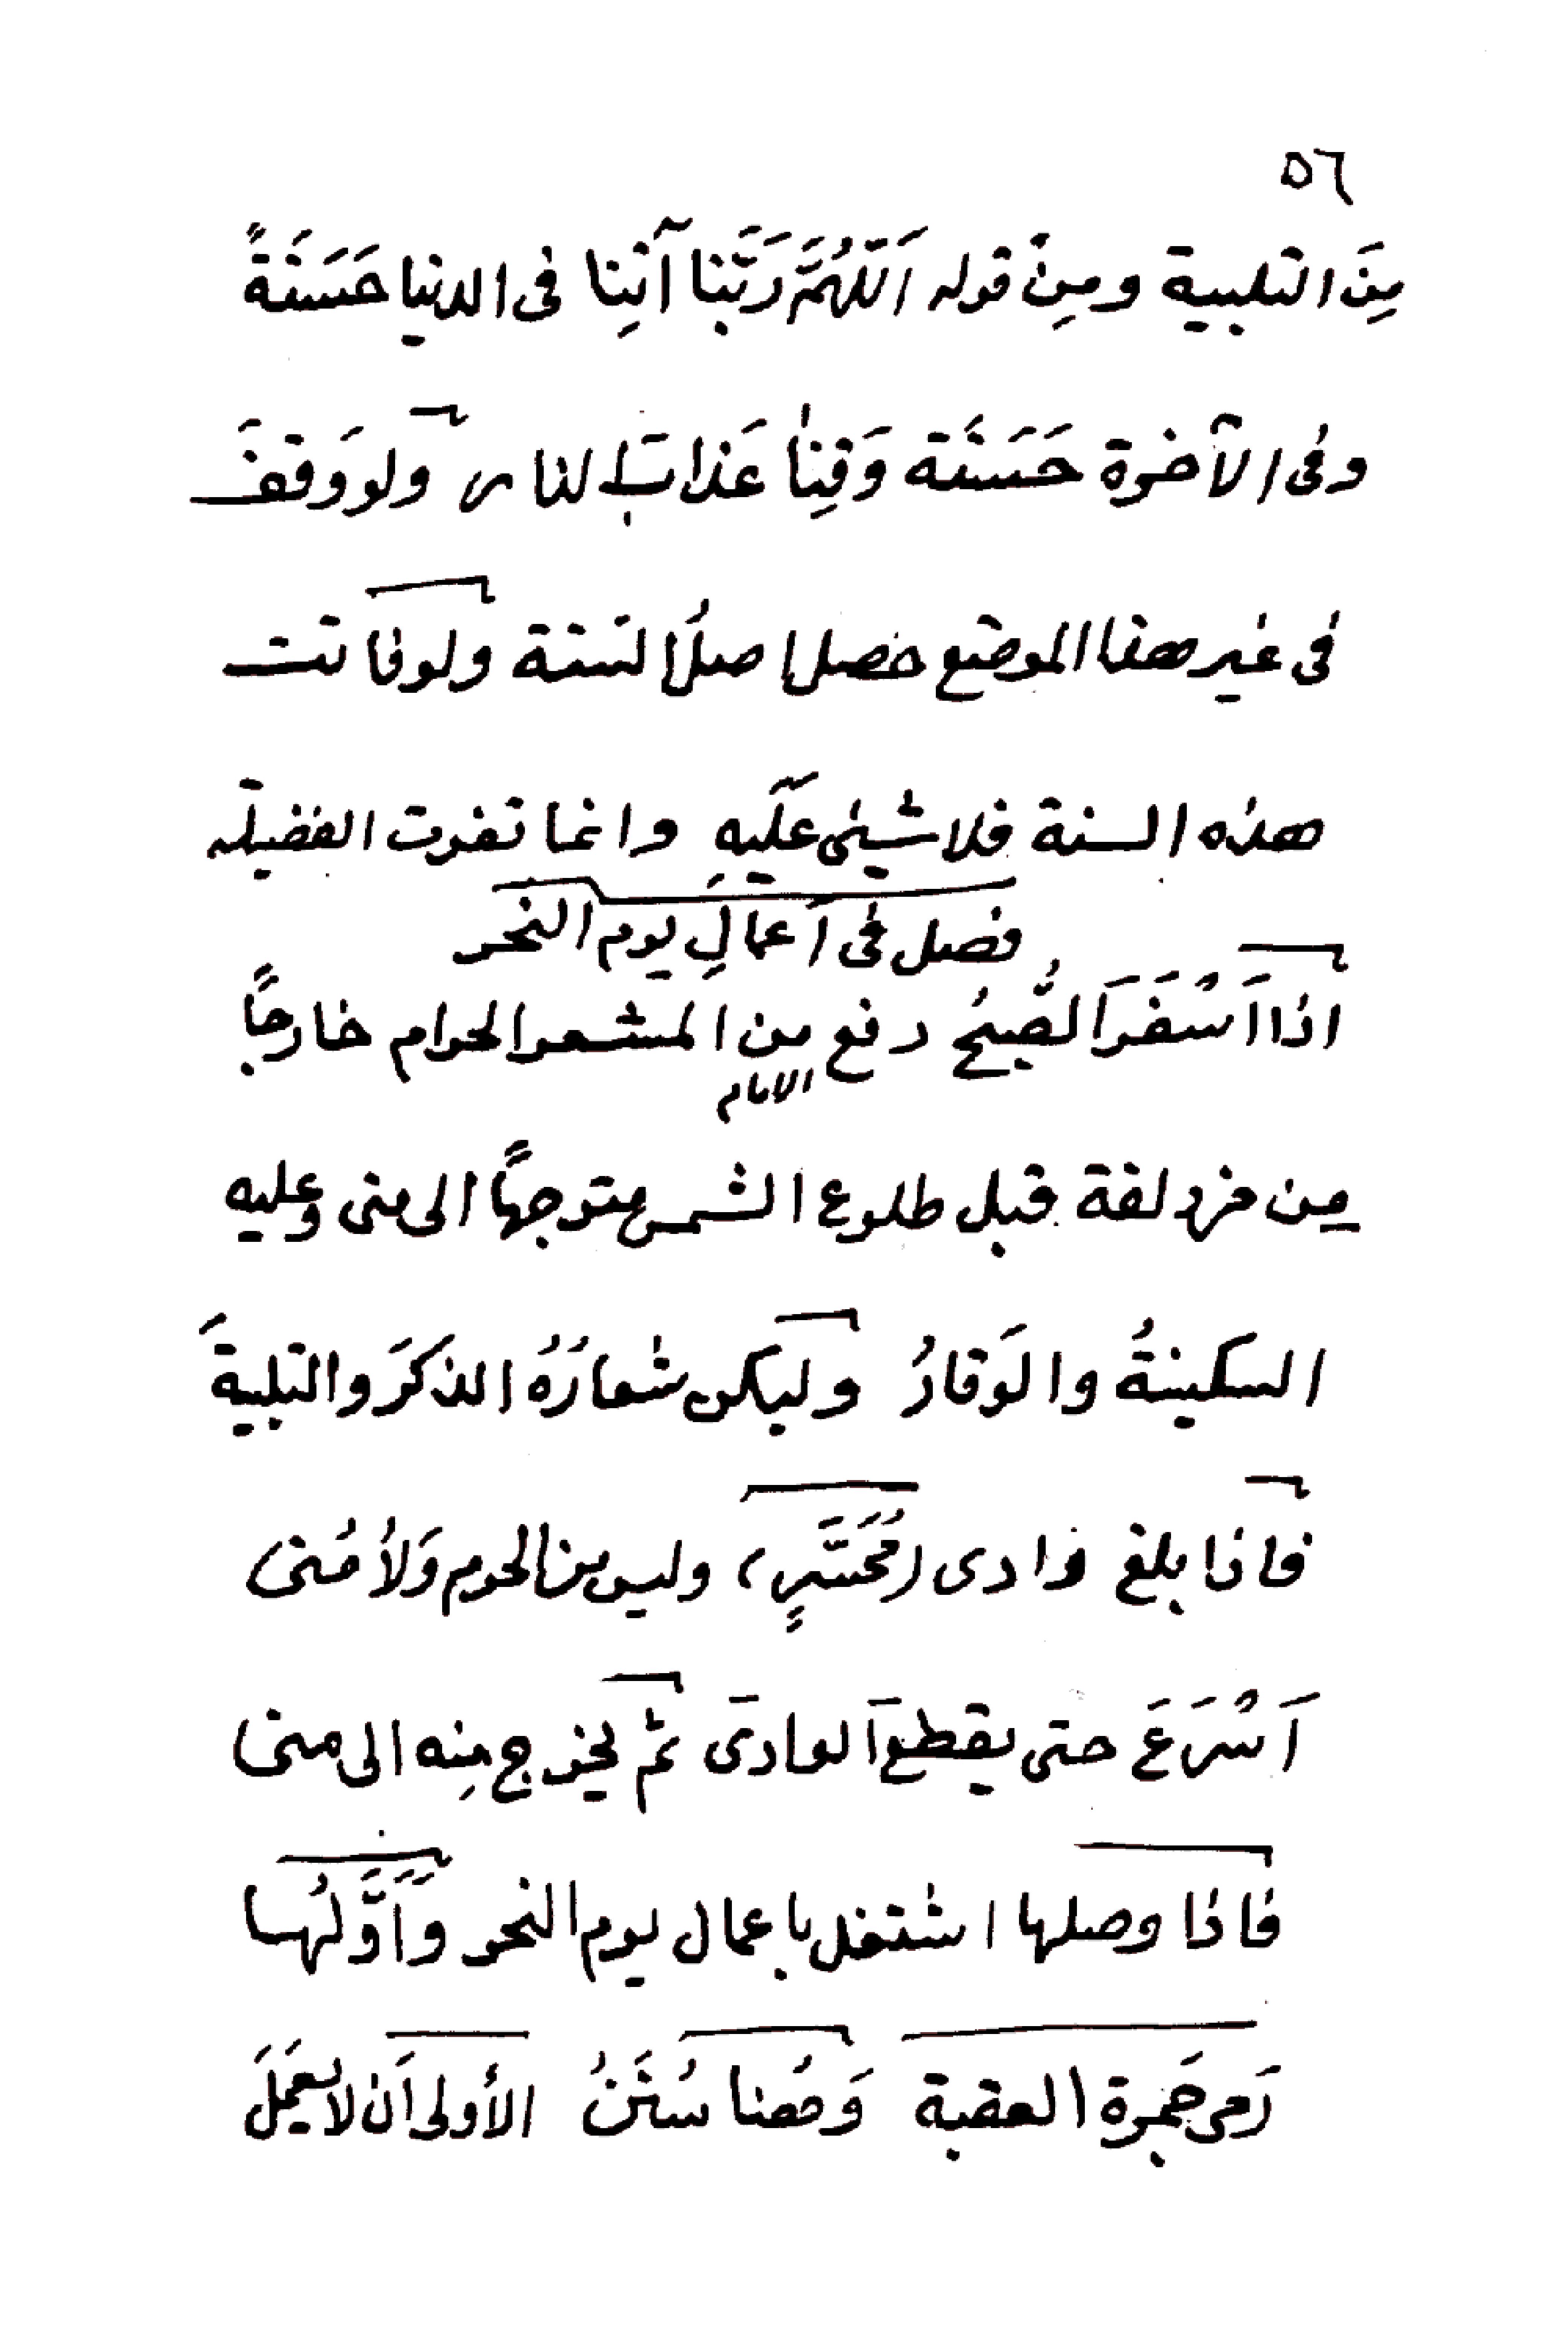 ٥٦
مِنَ التلبية ومِنْ قوله اَللّهُمَّ رَبَّنا آتِنا فى الدنيا حَسَنَةً
وفى الآخرة حَسَنَة وَقِنا عَذابَ النار وَلو وَقفَ
فى غير هذا الموضع حصل اصلُ السّنة ولو فاتت
هذه السنة فلا شيئ عَلَيهِ وانما تفوت الفضيلة
فصل فى اَعمالِ يوم النحر
اذا اَسْفَرَ الصُّبحُ دفع من المشعر الحرام خارجاً
الامام
مِن مزدلفة قبل طلوع الشمس متوجهاً الى منى وعليه
السكينةُ والوَقارُ وليكن شعارُهُ الذكرَ والتلبيةَ
فاذا بلغ وادى (مُحَسَّرٍ) وليس من الحرم وَلا مُنى
اَسْرَعَ حتى يقطعَ الوادىَ ثم يخرج مِنه الى منى
فاذا وصلها اشتغل باعمال يوم النحر وَاَوَّلُها
رَمى جَمرة العقبة وَهُنا سُنَنُ الأولى اَن لا يعمَلَ